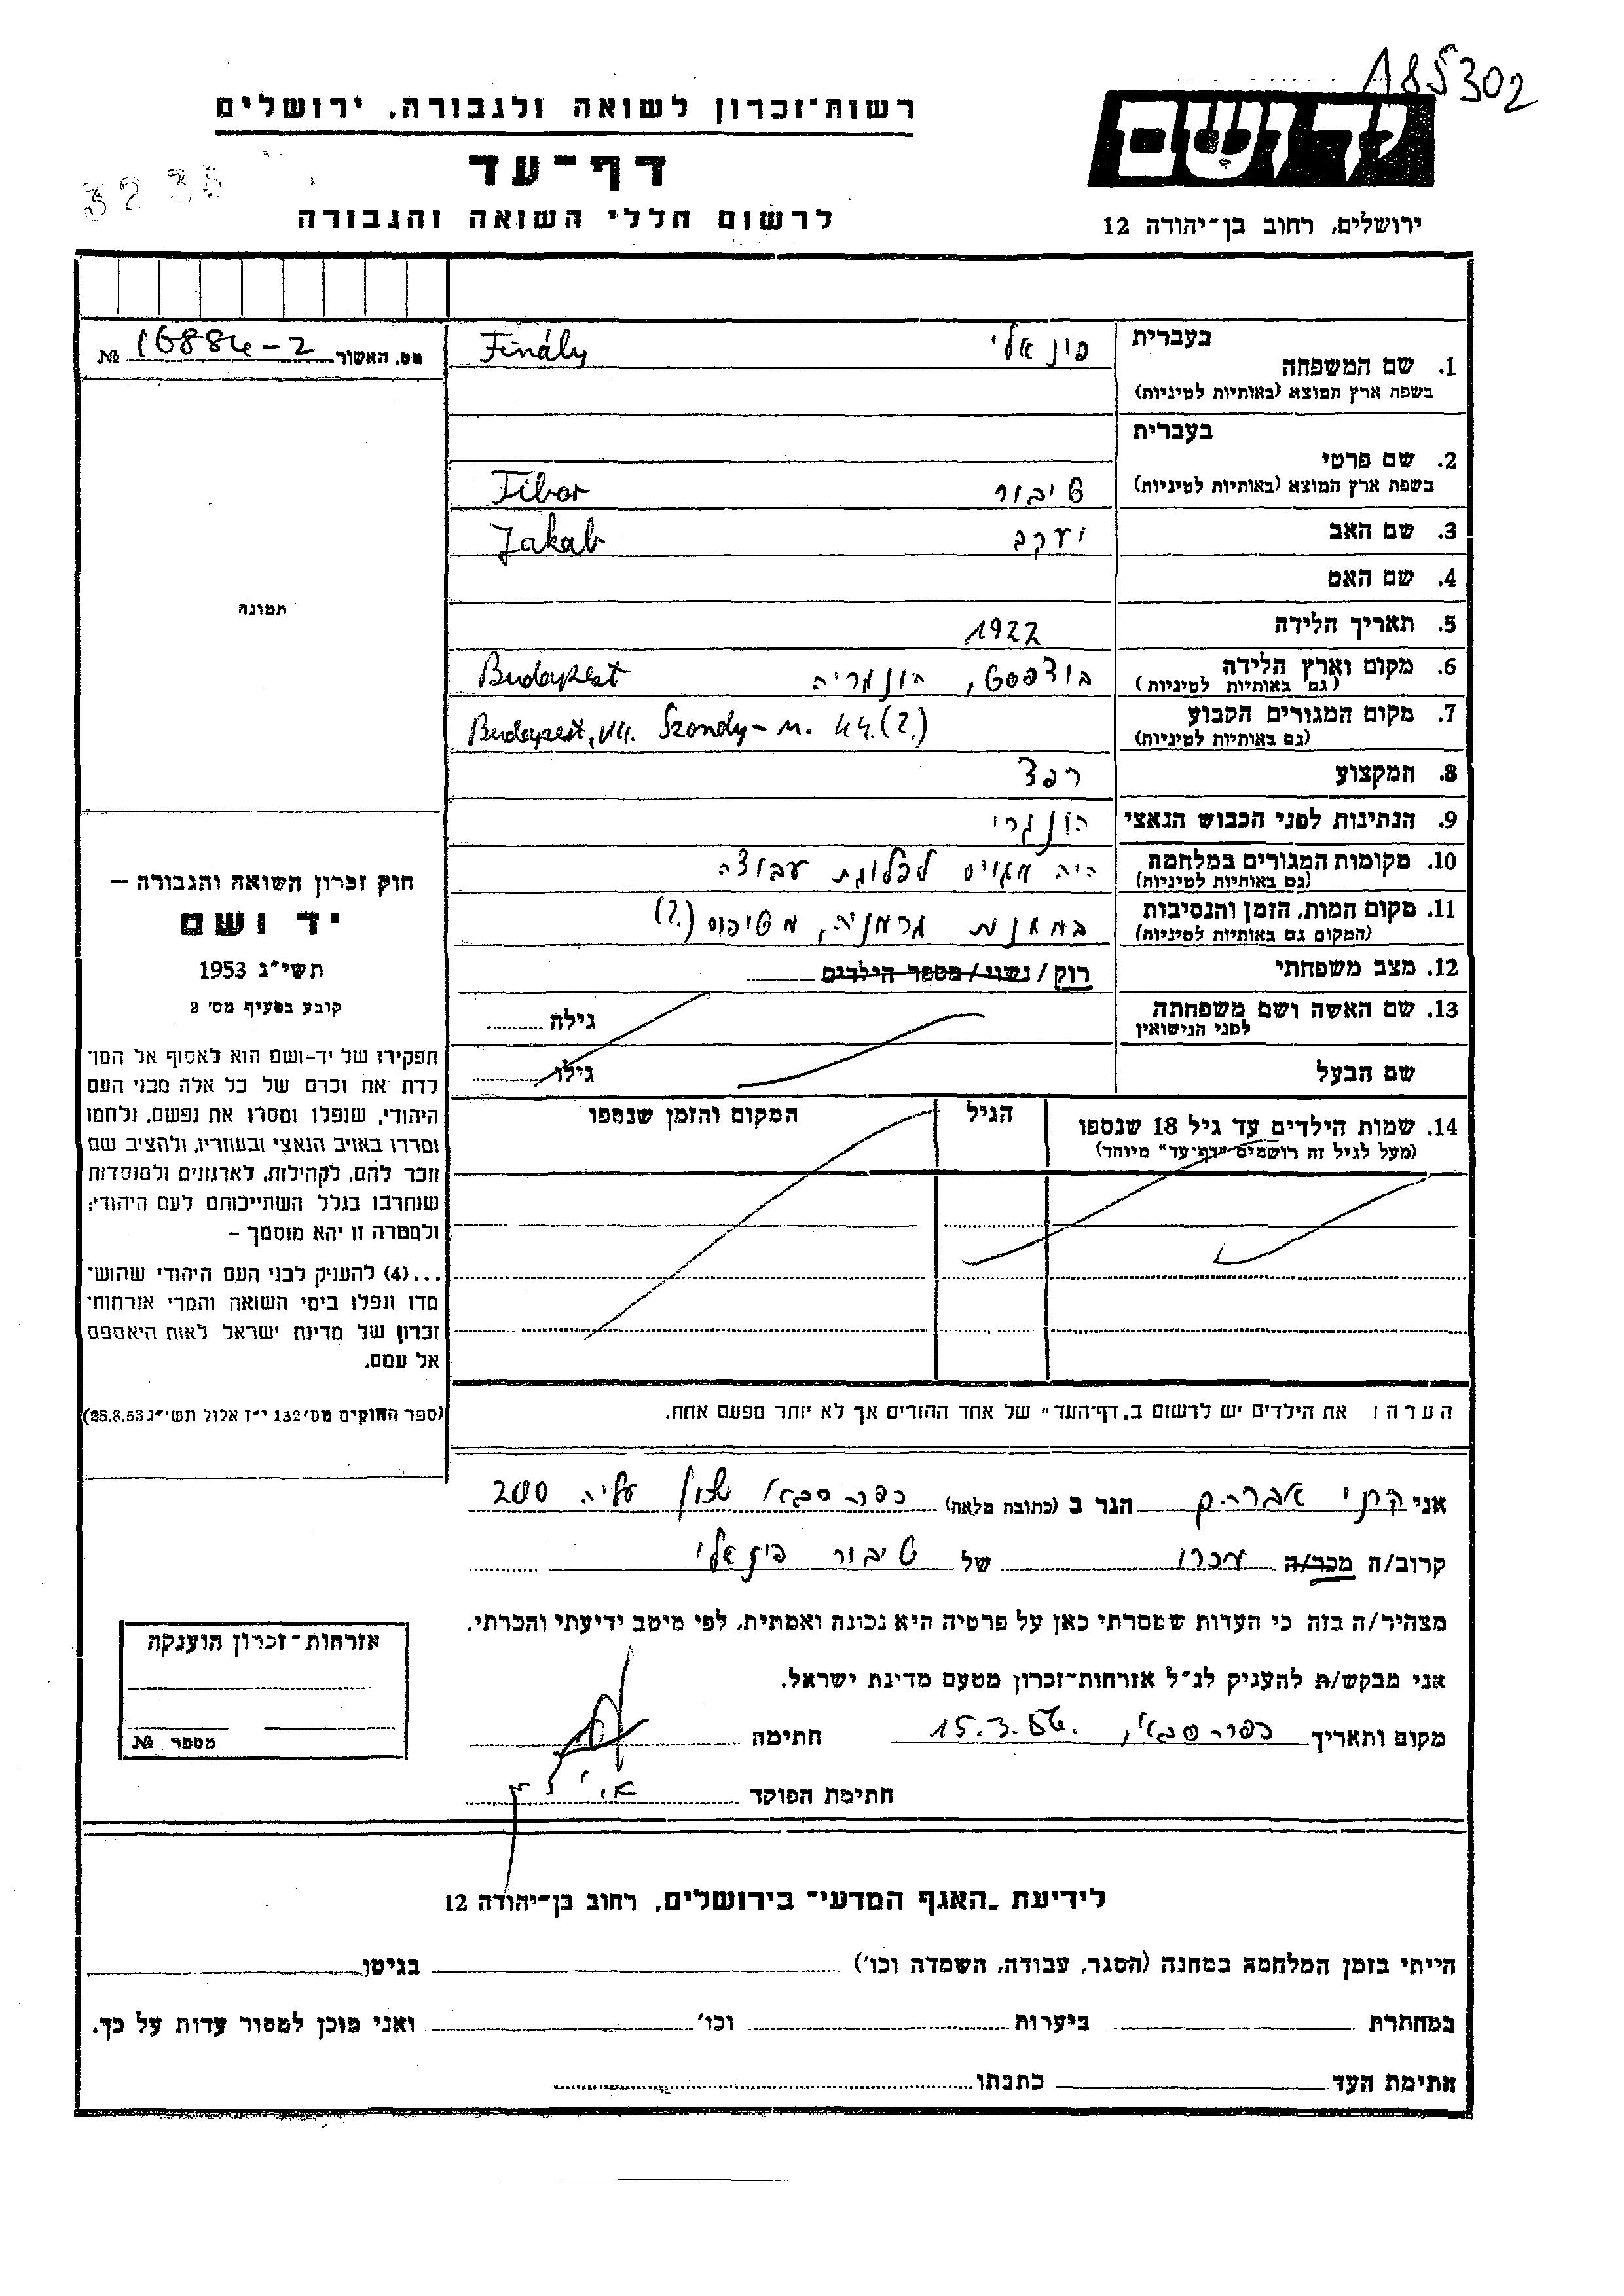 A85302
רשות־זכרון לשואה ולגבורה, ירושלים
דף־עד
לרשום חללי השואה והגבורה
יד ושם
ירושלים, רחוב בן־יהודה 12
3238
מס. האשור 16884-2 №
בעברית
1. שם המשפחה
בשפת ארץ המוצא (באותיות לטיניות)
פינאלי Finály
בעברית
2. שם פרטי
בשפת ארץ המוצא (באותיות לטיניות)
טיבור Tibor
3. שם האב יעקב Jakab
4. שם האם
5. תאריך הלידה 1922
6. מקום וארץ הלידה בודפסט, הונגריה Budapest
(גם באותיות לטיניות)
7. מקום המגורים הקבוע Budapest, VII. Szondy-u. 44.(?)
(גם באותיות לטיניות)
8. המקצוע רפד
9. הנתינות לפני הכבוש הנאצי הונגרי
10. מקומות המגורים במלחמה היה מגויס לפלוגת עבודה
(גם באותיות לטיניות)
11. מקום המות, הזמן והנסיבות במחנות גרמניה, מטיפוס (?)
(המקום גם באותיות לטיניות)
12. מצב משפחתי רוק / נשוי / מספר הילדים
13. שם האשה ושם משפחתה
לפני הנישואין
גילה
שם הבעל גילו
14. שמות הילדים עד גיל 18 שנספו
(מעל לגיל זה רושמים "דף־עד" מיוחד)
הגיל
המקום והזמן שנספו
הערה: את הילדים יש לרשום ב"דף־העד" של אחד ההורים אך לא יותר מפעם אחת.
תמונה
חוק זכרון השואה והגבורה —
יד ושם
תשי"ג 1953
קובע בסעיף מס' 2
תפקידו של יד-ושם הוא לאסוף אל המו־
לדת את זכרם של כל אלה מבני העם
היהודי, שנפלו ומסרו את נפשם, נלחמו
ומרדו באויב הנאצי ובעוזריו, ולהציב שם
וזכר להם, לקהילות, לארגונים ולמוסדות
שנחרבו בגלל השתייכותם לעם היהודי;
ולמטרה זו יהא מוסמך –
...(4) להעניק לבני העם היהודי שהוש־
מדו ונפלו בימי השואה והמרי אזרחות־
זכרון של מדינת ישראל לאות היאספם
אל עמם.
(ספר החוקים מס' 132 י"ז אלול תשי"ג 28.8.53)
אני הגר ב (כתובת מלאה) כפר-סבא, שכון עליה 200
קרוב/ה מכר/ה של טיבור פינאלי
מצהיר/ה בזה כי העדות שמסרתי כאן על פרטיה היא נכונה ואמתית, לפי מיטב ידיעתי והכרתי.
אני מבקש/ת להעניק לנ"ל אזרחות־זכרון מטעם מדינת ישראל.
מקום ותאריך כפר-סבא, 15.3.56. חתימה
חתימת הפוקד
אזרחות־זכרון הוענקה
מספר №
לידיעת "האגף המדעי" בירושלים, רחוב בן־יהודה 12
הייתי בזמן המלחמה במחנה (הסגר, עבודה, השמדה וכו') בגיטו
במחתרת ביערות וכו' ואני מוכן למסור עדות על כך.
חתימת העד כתבתו